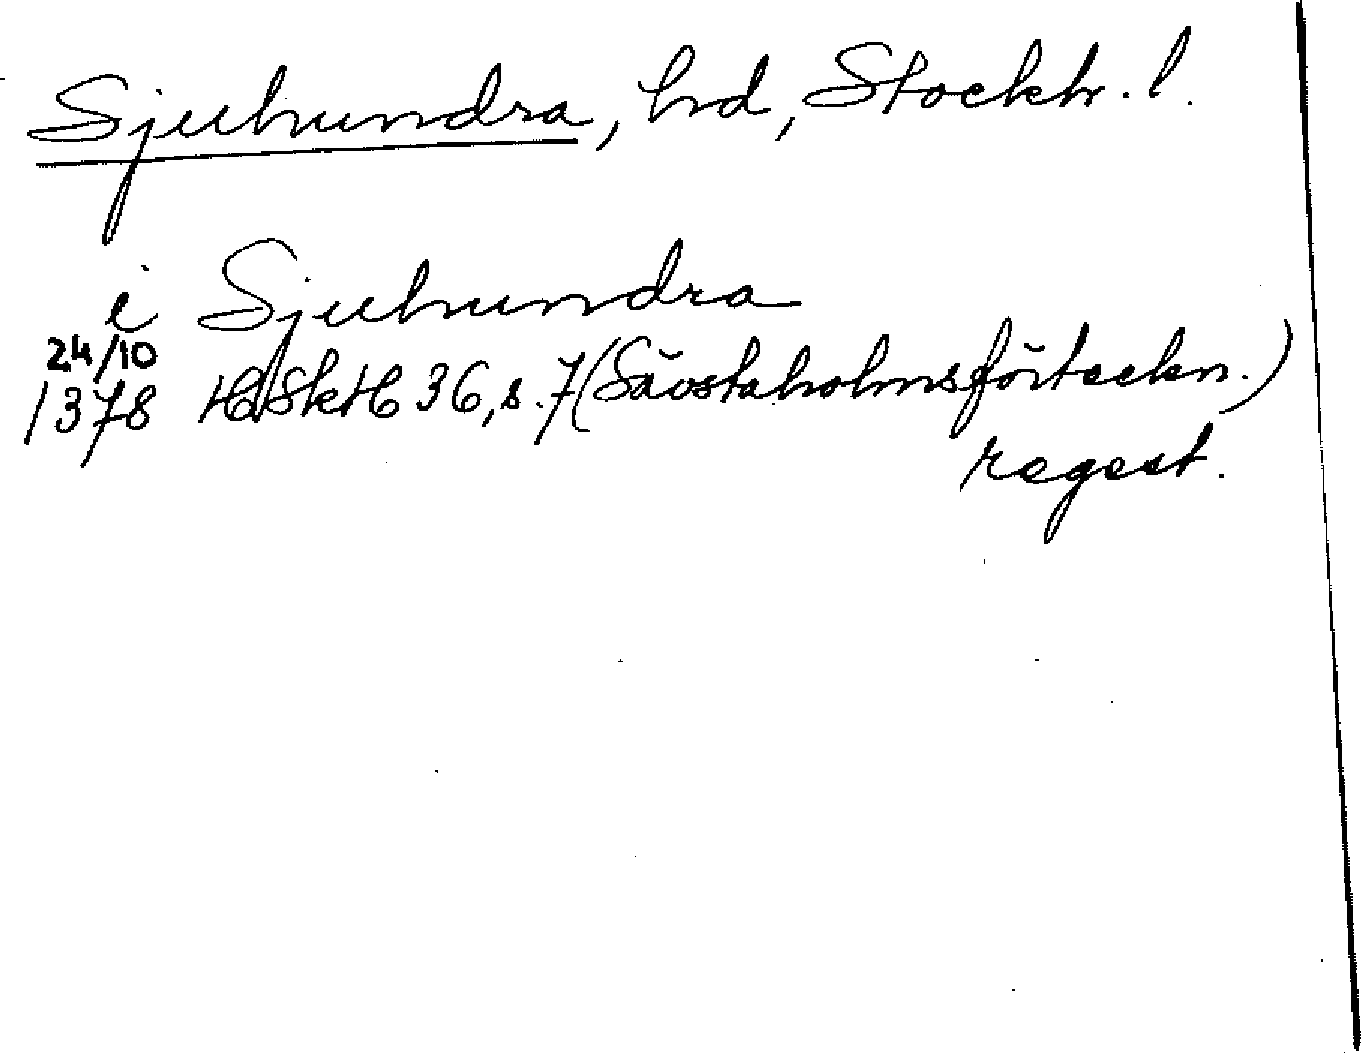 Sjuhundra, hd, Stockh. l.
i Sjuhundra
24/10
1378 HSkH 36, s. 7 (Sävstaholmsförteckn.)
regest.